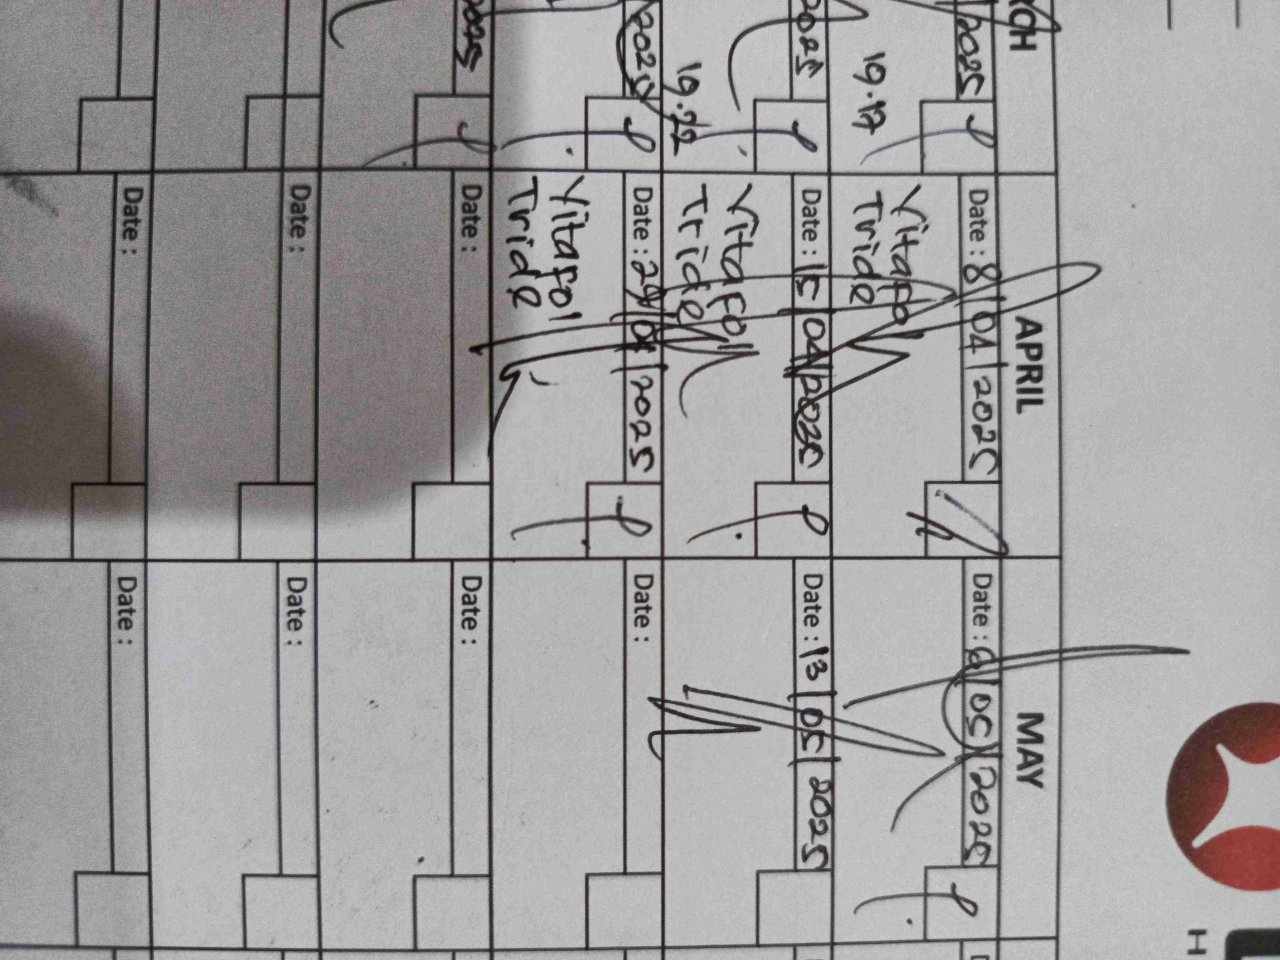 CH
APRIL
MAY
2025
Date : 8/04/2025
Date : 6/05/2025
19.17
Vitafol
Tride
2025
Date : 15/04/2025
Date : 13/05/2025
19.22
Vitafol
Tride
2025
Date : 29/04/2025
Date :
Vitafol
Tride
2025
Date :
Date :
Date :
Date :
Date :
Date :
H